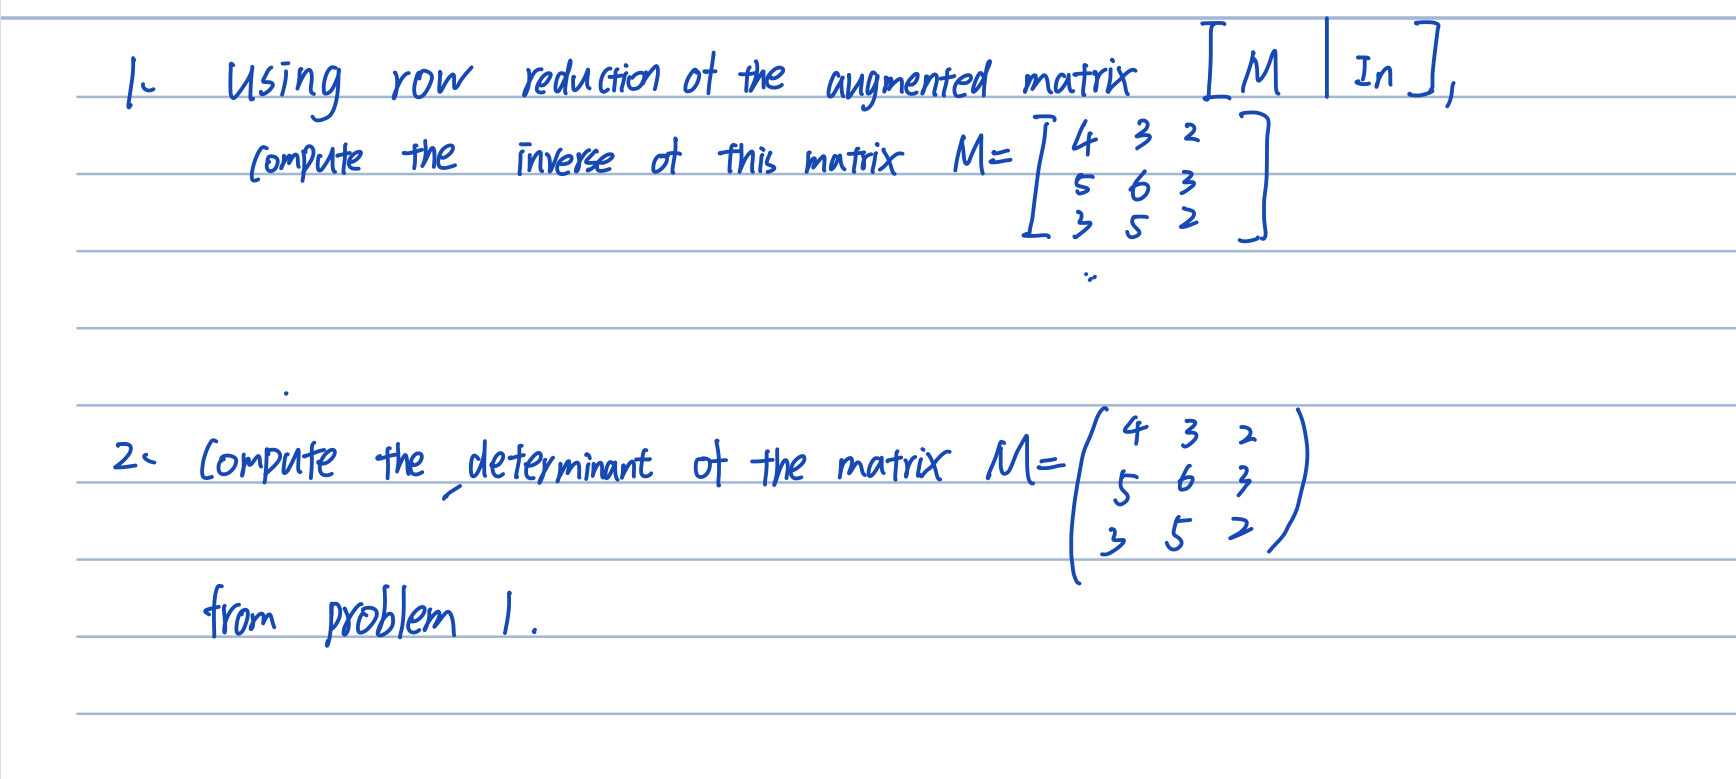 1. Using row reduction of the augmented matrix [ M | In ],
compute the inverse of this matrix M= [ 4 3 2
5 6 3
3 5 2 ]
2. Compute the determinant of the matrix M= ( 4 3 2
5 6 3
3 5 2 )
from problem 1.